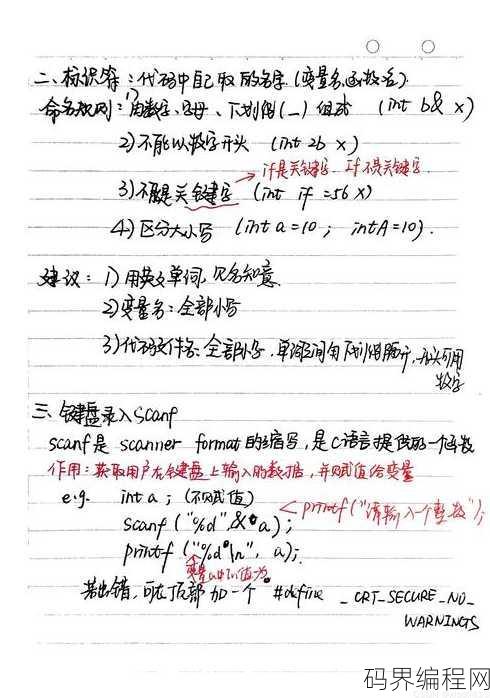 二、标识符：代码中自己取的名字（变量名，函数名）
命名规则：1)由数字、字母、下划线(_)组成 (int b& x)
2)不能以数字开头 (int 2b x)
if是关键字. If不是关键字.
3)不能是关键字 (int if =56 x)
4)区分大小写 (int a=10; int A=10).
建议：1)用英文单词，见名知意.
2)变量名：全部小写
3)代码文件名：全部小写，单词之间用下划线隔开，开头可用
数字
三、键盘录入scanf
scanf是 scanner format的缩写，是C语言提供的一个函数
作用：获取用户在键盘上输入的数据，并赋值给变量
e.g. int a; (不赋值)
printf("请输入一个整数");
scanf("%d",&a);
printf("%d\n", a);
变量a中的值为
若出错，可在顶部加一个 #define _CRT_SECURE_NO_
WARNINGS
码界编程网